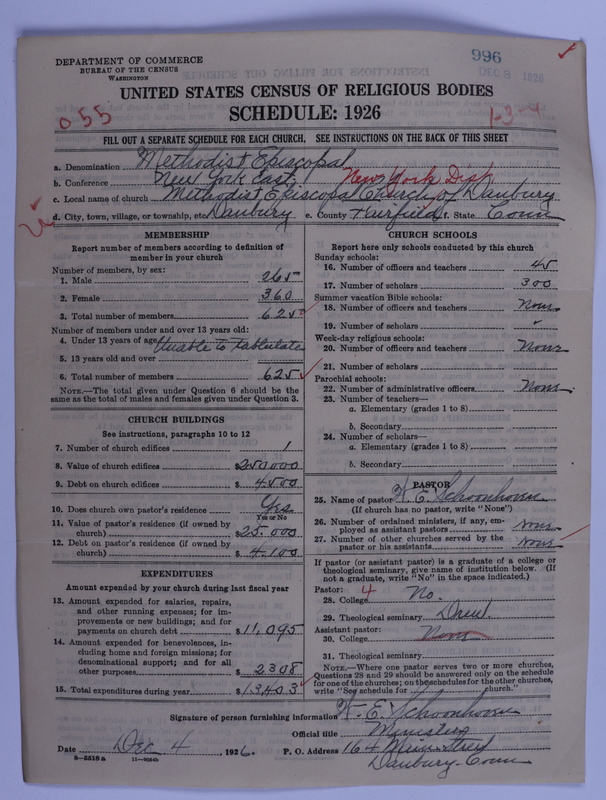 DEPARTMENT OF COMMERCE
BUREAU OF THE CENSUS
WASHINGTON
996
DEC 8 1926
UNITED STATES CENSUS OF RELIGIOUS BODIES
SCHEDULE: 1926
055
1-3-4
FILL OUT A SEPARATE SCHEDULE FOR EACH CHURCH, SEE INSTRUCTIONS ON THE BACK OF THIS SHEET
a. Denomination Methodist Episcopal
b. Conference New York East New York Dist
c. Local name of church Methodist Episcopal Church of Danbury
d. City, town, village, or township, etc Danbury e. County Fairfield f. State Conn
MEMBERSHIP
Report number of members according to definition of
member in your church
Number of members, by sex:
1. Male 265
2. Female 360
3. Total number of members 625
Number of members under and over 13 years old:
4. Under 13 years of age Unable to tabulate
5. 13 years old and over
6. Total number of members 625
NOTE.—The total given under Question 6 should be the
same as the total of males and females given under Question 3.
CHURCH BUILDINGS
See instructions, paragraphs 10 to 12
7. Number of church edifices 1
8. Value of church edifices $250000
9. Debt on church edifices $4500
10. Does church own pastor's residence Yes
Yes or No
11. Value of pastor's residence (if owned by
church) $25.000
12. Debt on pastor's residence (if owned by
church) $4100
EXPENDITURES
Amount expended by your church during last fiscal year
13. Amount expended for salaries, repairs,
and other running expenses; for im-
provements or new buildings; and for
payments on church debt $11,095
14. Amount expended for benevolences, in-
cluding home and foreign missions; for
denominational support; and for all
other purposes $2308
15. Total expenditures during year $13403
CHURCH SCHOOLS
Report here only schools conducted by this church
Sunday schools:
16. Number of officers and teachers 45
17. Number of scholars 300
Summer vacation Bible schools:
18. Number of officers and teachers None
19. Number of scholars
Week-day religious schools:
20. Number of officers and teachers None
21. Number of scholars
Parochial schools:
22. Number of administrative officers None
23. Number of teachers—
a. Elementary (grades 1 to 8)
b. Secondary
24. Number of scholars—
a. Elementary (grades 1 to 8)
b. Secondary
PASTOR
25. Name of pastor W. E. Schoonhoven
(If church has no pastor, write "None")
26. Number of ordained ministers, if any, em-
ployed as assistant pastors None
27. Number of other churches served by the
pastor or his assistants None
If pastor (or assistant pastor) is a graduate of a college or
theological seminary, give name of institution below. (If
not a graduate, write "No" in the space indicated.)
Pastor: 4
28. College No.
29. Theological seminary Drew
Assistant pastor:
30. College None
31. Theological seminary
NOTE.—Where one pastor serves two or more churches,
Questions 28 and 29 should be answered only on the schedule
for one of the churches; on the schedules for the other churches,
write "See schedule for church."
Signature of person furnishing information W. E. Schoonhoven
Official title Minister
Date Dec 4 1926. P. O. Address 164 Main Street
8—5518a 11—9034b
Danbury-Conn